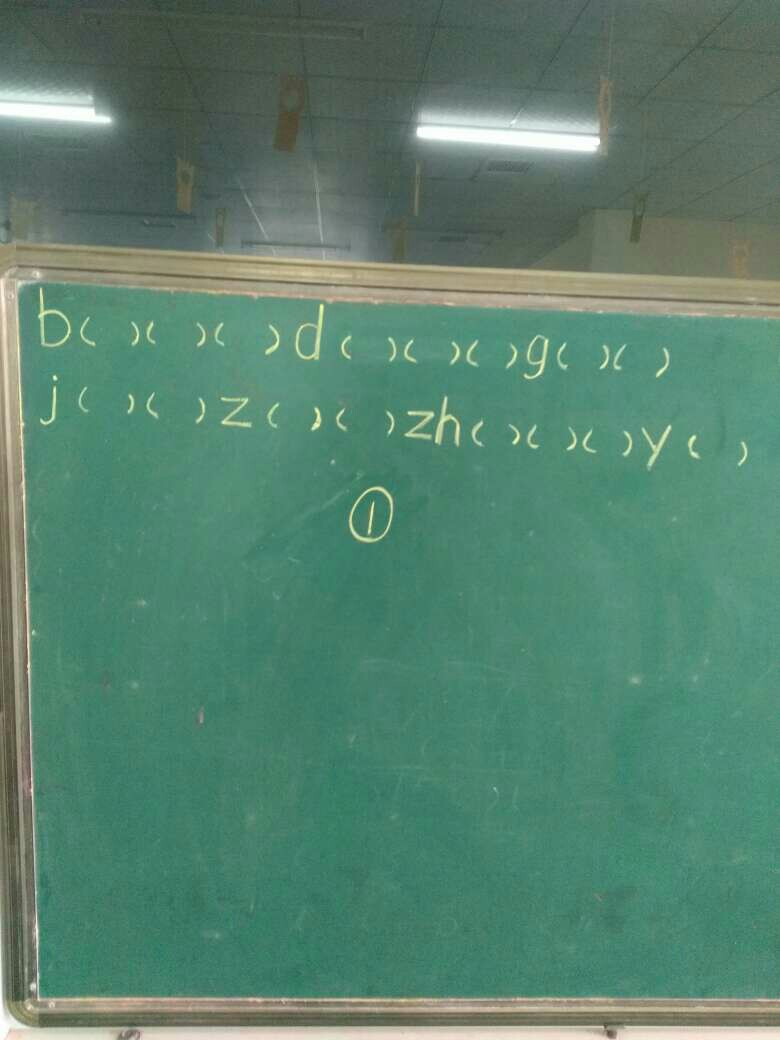 b( )( )( )d( )( )( )g( )( )
j( )( )z( )( )zh( )( )( )y( )
①